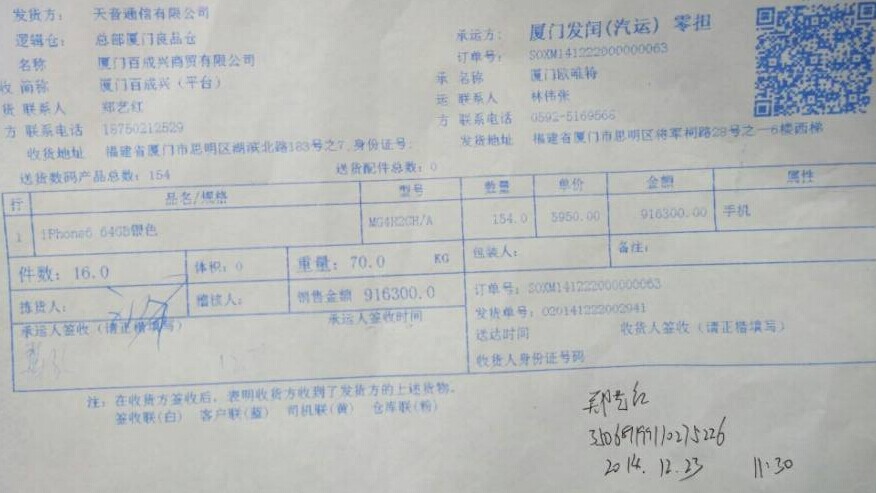 发货方: 天音通信有限公司
逻辑仓: 总部厦门良品仓
名称 厦门百成兴商贸有限公司
收 简称 厦门百成兴(平台)
货 联系人 郑艺红
方 联系电话 18750212529
收货地址 福建省厦门市思明区湖滨北路183号之7,身份证号:
承运方: 厦门发闰(汽运) 零担
订单号: SOXM141222000000063
承 名称 厦门欧唯特
运 联系人 林伟张
方 联系电话 0592-5169566
发货地址 福建省厦门市思明区将军祠路28号之一6楼西梯
送货数码产品总数: 154 送货配件总数: 0
行 品名/规格 型号 数量 单价 金额 属性
1 iPhone6 64GB银色 MG4H2CH/A 154.0 5950.00 916300.00 手机
件数: 16.0 体积: 0 重量: 70.0 KG 包装人: 备注:
拣货人: 稽核人: 销售金额 916300.0
订单号: SOXM141222000000063
发货单号: 020141222002941
承运人签收 (请正楷填写) 承运人签收时间
送达时间 收货人签收 (请正楷填写)
收货人身份证号码
注: 在收货方签收后, 表明收货方收到了发货方的上述货物。
签收联(白) 客户联(蓝) 司机联(黄) 仓库联(粉)
郑艺红
2014.12.23 11:30